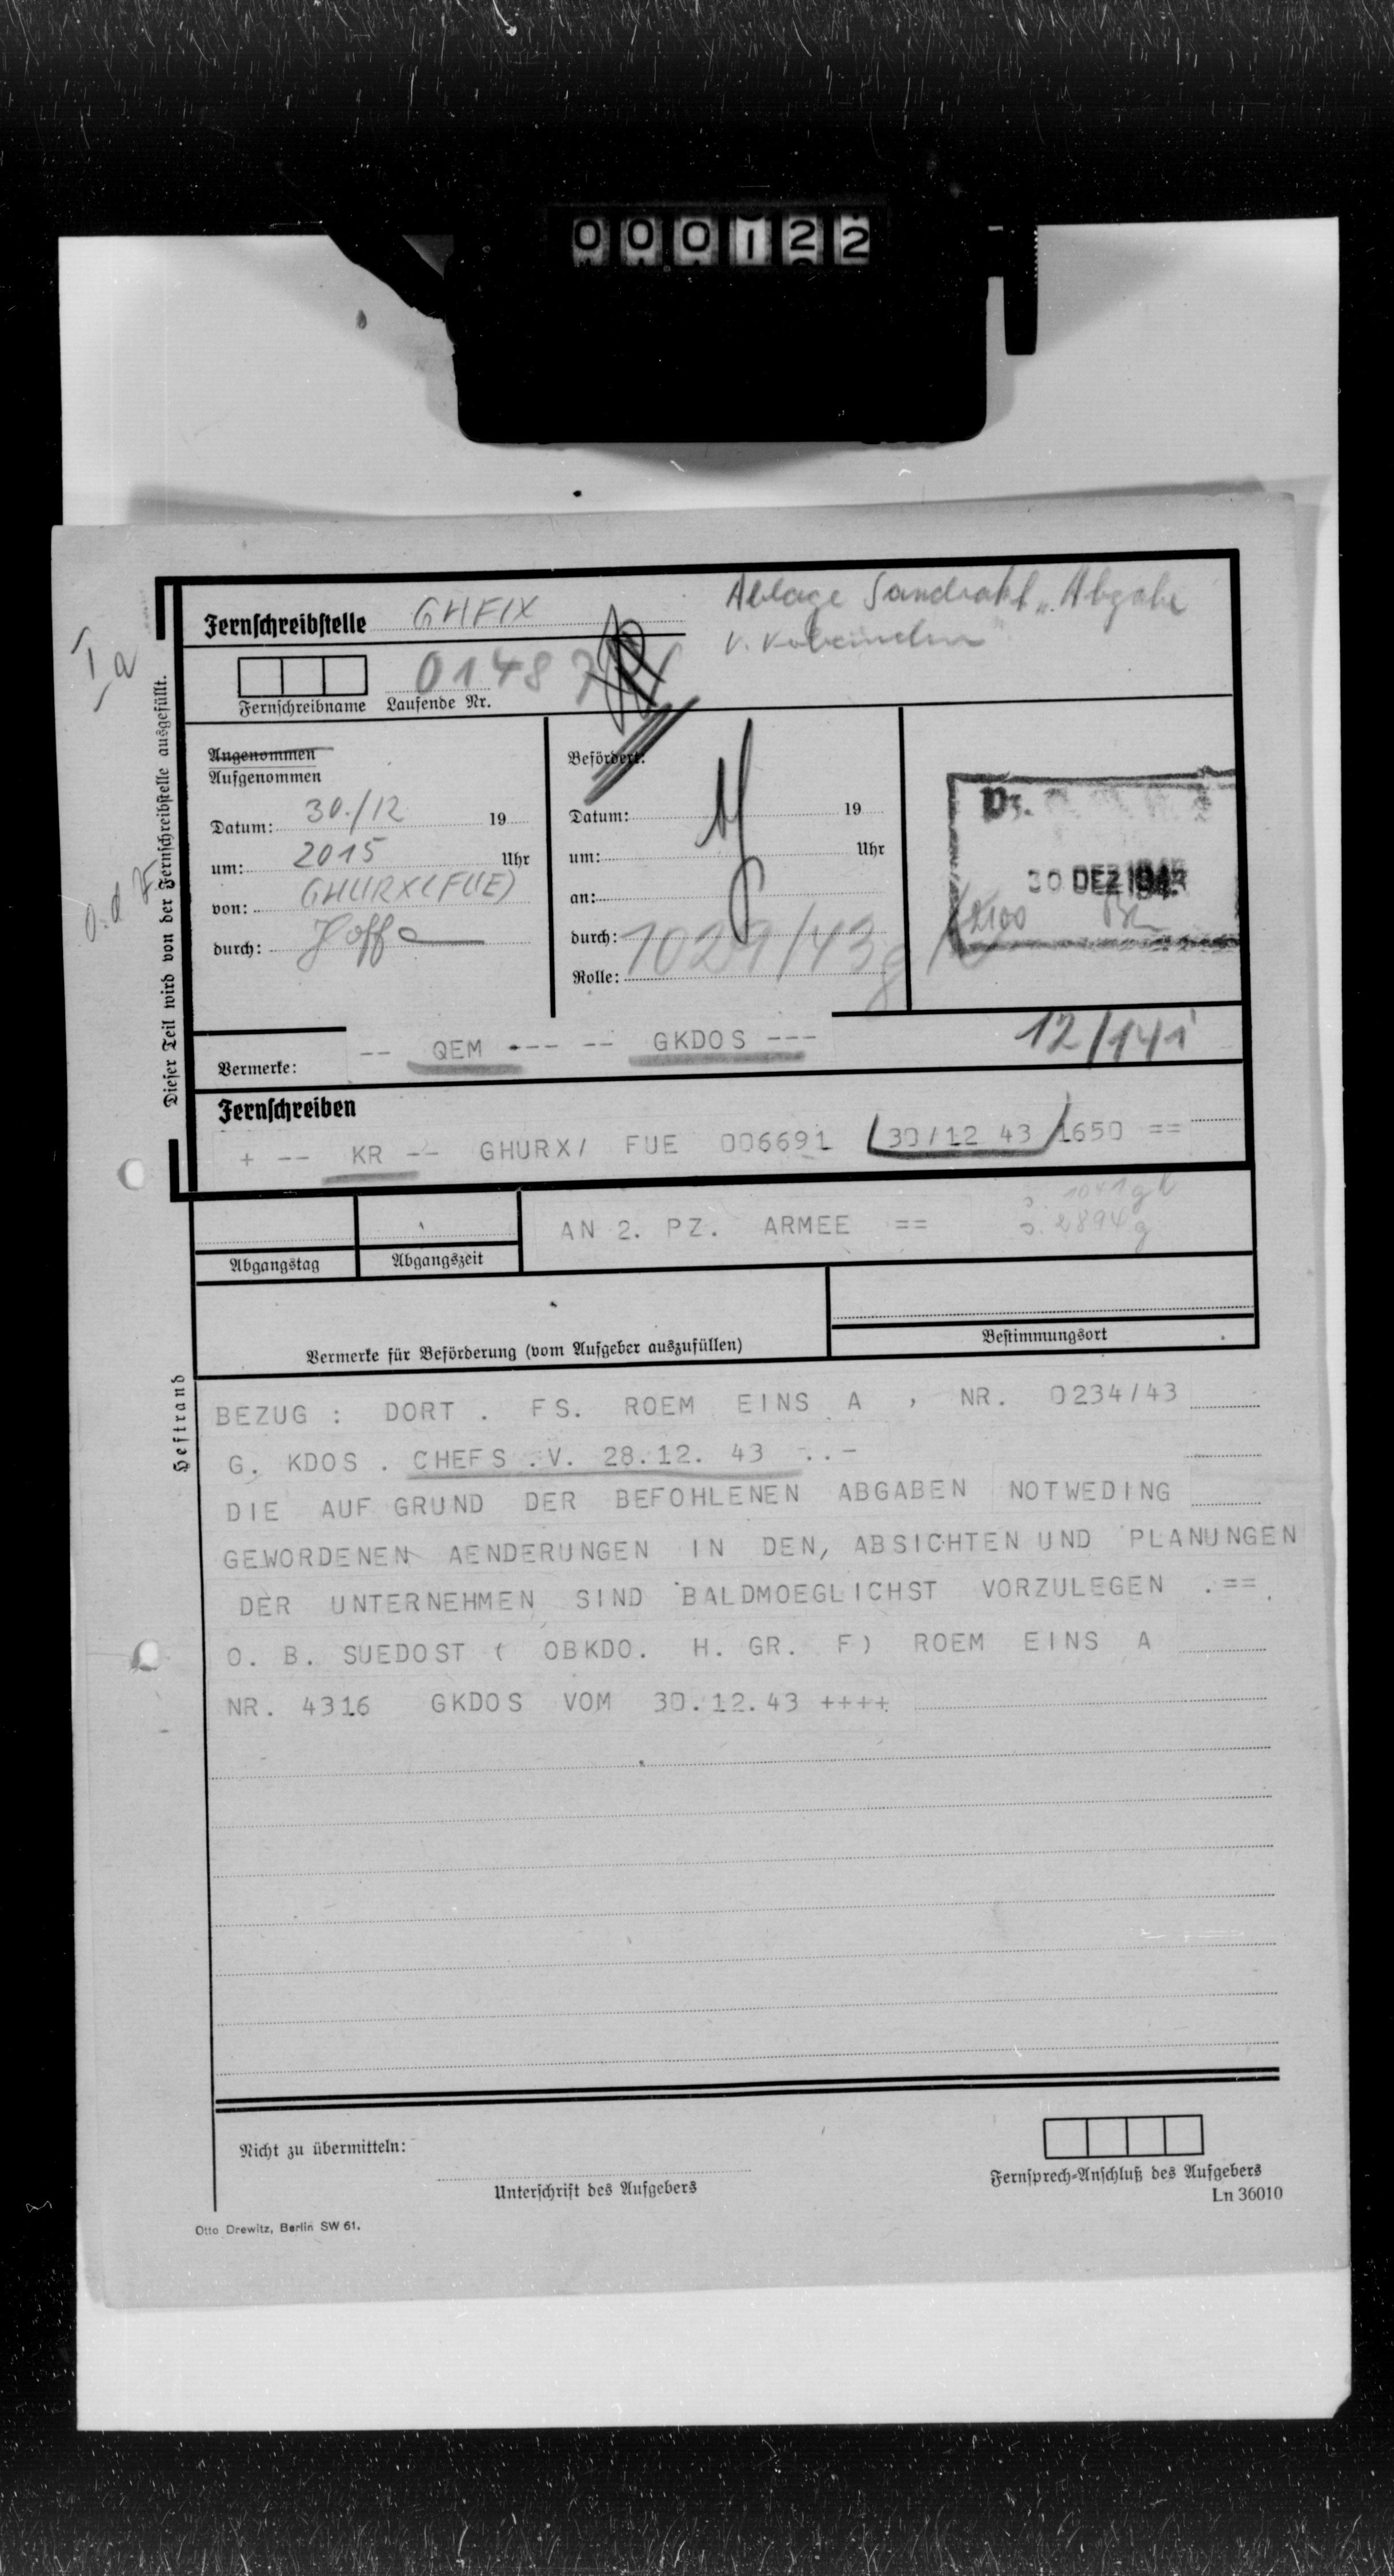 000122
Fernschreibstelle GHFIX
Ablage Sandrakl „Abgabe
v.
Ia
0148
Fernschreibname Laufende Nr.
Dieser Teil wird von der Fernschreibstelle ausgefüllt.
Angenommen
Aufgenommen
Datum: 30./12 19
um: 2015 Uhr
von: GHURX(FUE)
durch:
Befördert:
Datum: 19
um: Uhr
an:
durch:
Rolle:
1029/43 g
30 DEZ 1943
2100
Vermerke: -- QEM --- -- GKDOS ---
12/141
Fernschreiben
+ -- KR -- GHURX/ FUE 006691 (30/12 43) 1650 ==
AN 2. PZ. ARMEE ==
1041 gk
2894 g
Abgangstag Abgangszeit
Vermerke für Beförderung (vom Aufgeber auszufüllen)
Bestimmungsort
Heftrand
BEZUG : DORT . FS. ROEM EINS A , NR. 0234/43
G. KDOS . CHEFS .V. 28.12. 43 -..-
DIE AUF GRUND DER BEFOHLENEN ABGABEN NOTWEDING
GEWORDENEN AENDERUNGEN IN DEN, ABSICHTEN UND PLANUNGEN
DER UNTERNEHMEN SIND BALDMOEGLICHST VORZULEGEN .==
O. B. SUEDOST ( OBKDO. H. GR. F) ROEM EINS A
NR. 4316 GKDOS VOM 30.12.43 ++++
Nicht zu übermitteln:
Unterschrift des Aufgebers
Fernsprech-Anschluß des Aufgebers
Ln 36010
Otto Drewitz, Berlin SW 61.